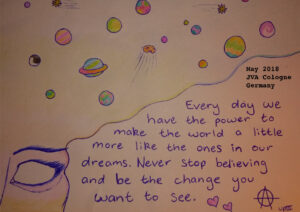 May 2018
JVA Cologne
Germany
Every day we
have the power to
make the world a little
more like the ones in our
dreams. Never stop believing
and be the change you
want to see.